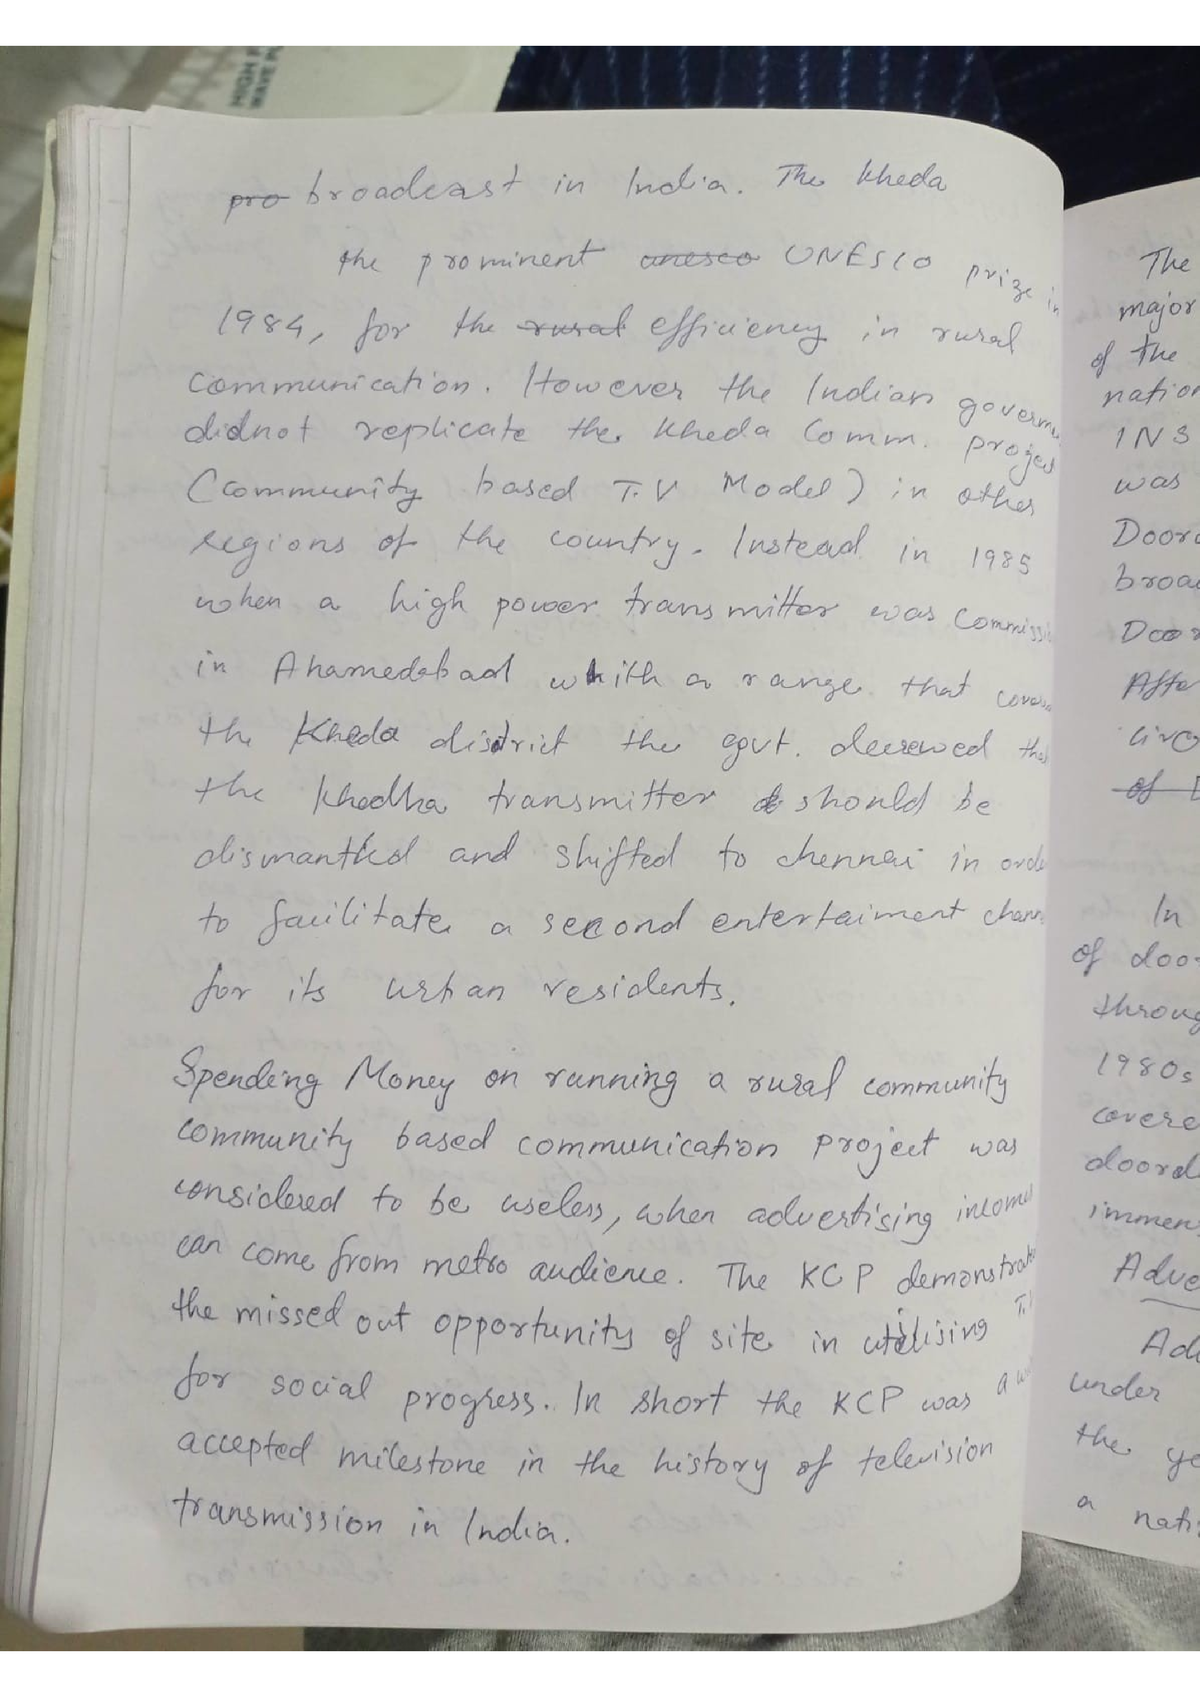 HIGH P
WAVE P
pro broadcast in India. The Kheda
the prominent unesco UNESCO prize in
1984, for the rural efficiency in rural
communication. However the Indian governm
didnot replicate the Kheda Comm. project
(community based T.V Model) in other
regions of the country. Instead in 1985
when a high power transmitter was commissi
in Ahamedabad whith a range that covers
the Kheda district the govt. decrewed that
the Khedha transmitter should be
dismantled and shifted to chennai in orde
to facilitate a second entertaiment chann
for its urban residents.
Spending Money on running a rural community
community based communication project was
considered to be useless, when advertising incomes
can come from metro audience. The KCP demonstrate
the missed out opportunity of site in utilising T.V
for social progress. In short the KCP was a w
accepted milestone in the history of television
transmission in India.
The
major
of the
nation
INS
was
Doord
broa
Door
Afte
live
of D
In
of door
throug
1980s
covere
doord
immens
Adve
Adv
under
the ye
a nati